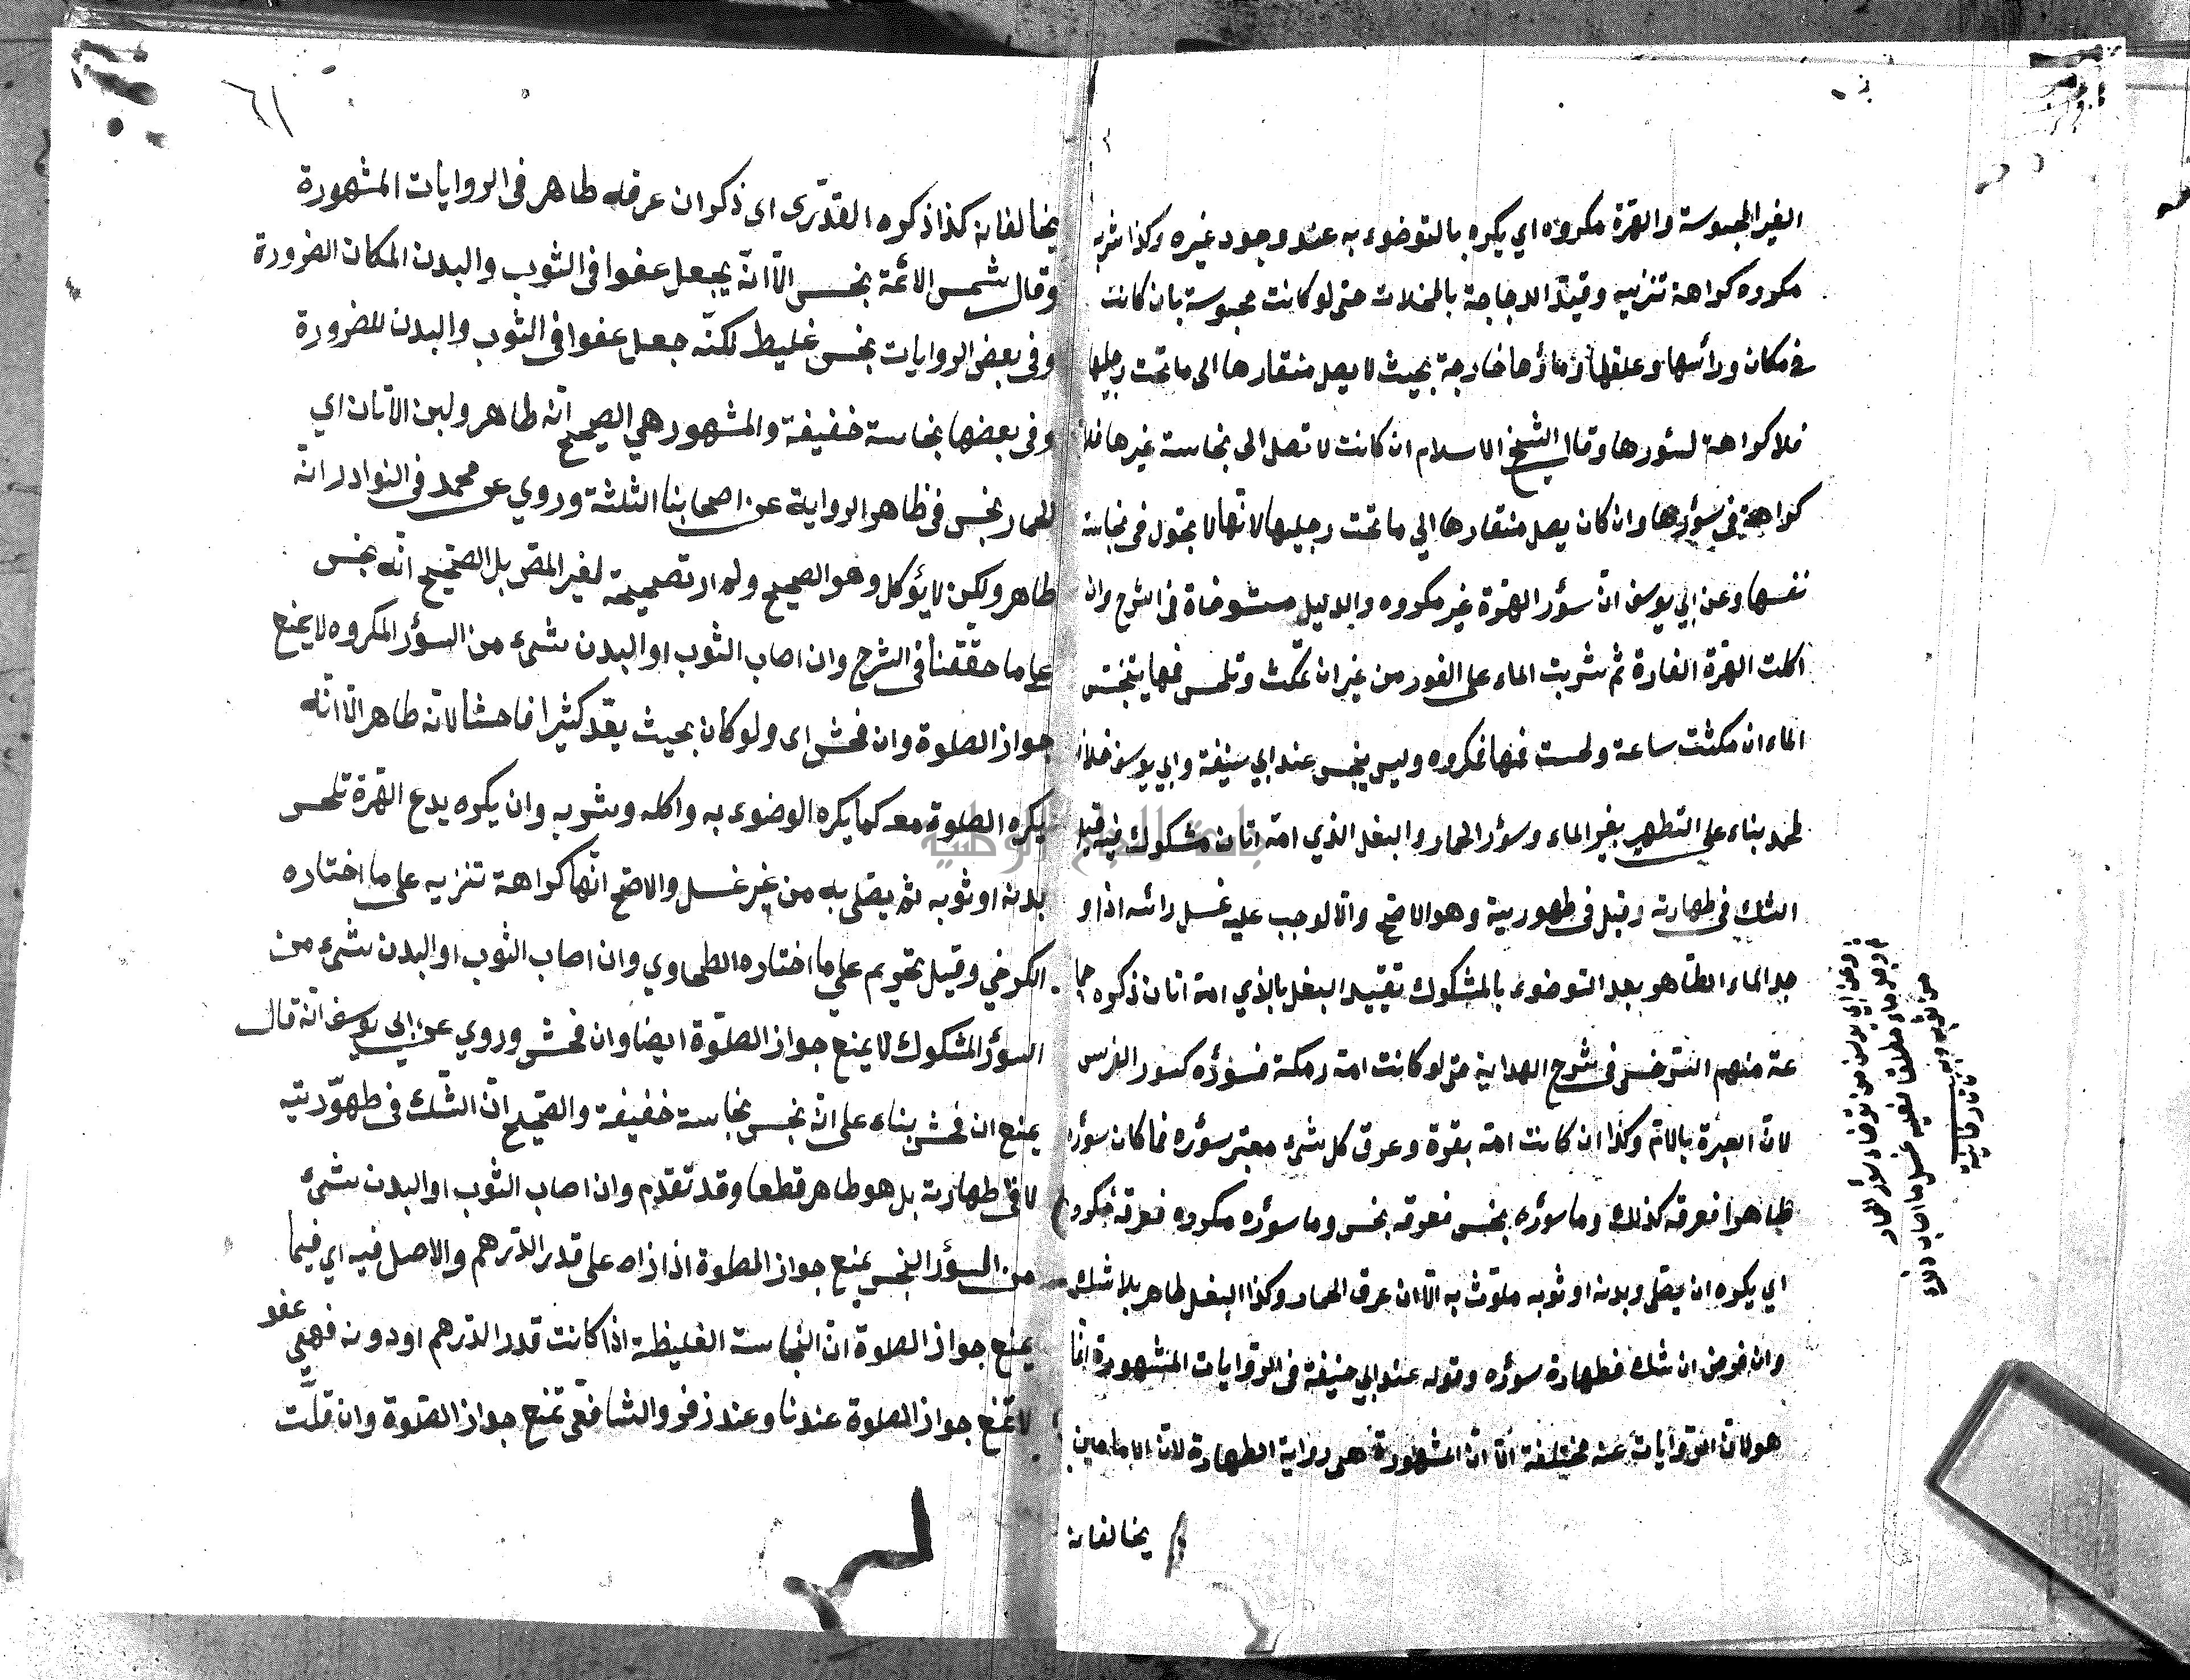 الغير المحبوسة والهرّة مكروه اي يكره بالتوضوء به عند وجود غيره وكذا شربه
مكروه كراهة تنزيه وقيّد الدجاجة بالمخلات حتى لو كانت محبوسة بان كانت
في مكان ورأسها وعلفها وماؤها خارجة بحيث لا يصل منقارها الى ما تحت رجليها
فلا كراهة لسؤرها وقال الشيخ الاسلام ان كانت لا تصل الى نجاسة غيرها فلا
كراهة في سؤرها وان كان يصل منقارها الي ما تحت رجليها لانّها لا تجول في نجاسة
نفسها وعن ابي يوسف انّ سؤر الهرّة غير مكروه والدليل مستوفاة في الشرح وان
اكلت الهرّة الفارة ثم شربت الماء على الفور من غير ان تمكث وتلحس فمها يتنجّس
الماء ان مكثت ساعة ولحست فمها فمكروه وليس بنجس عند ابي حنيفة وابي يوسف خلافا
لمحمد بناء على التطهير بغير الماء وسؤر الحمار والبغل الذي امّه اتان مشكوك فيه قيل
الشك في طهارته وقيل في طهوريية وهو الاصحّ والّا لوجب عليه غسل رأسه اذا و
جد الماء الطّاهر بعد التوضوء بالمشكوك تقييد البغل بالذي امه اتان ذكره جما
عة منهم السّرخسي في شرح الهداية حتى لو كانت امّه رمكة فسؤره كسور الفرس
لانّ العبرة بالام وكذا ان كانت امّه بقرة وعرق كل شيء معتبر سؤره فما كان سؤره
طاهرا فعرقه كذلك وما سؤره نجس فعرقه نجس وما سؤره مكروه فعرقه مكروه
اي يكره ان يصّلي وبدنه او ثوبه ملوّث به الّا ان عرق الحمار وكذا البغل طاهر بلا شك
وان فرض ان شك فطهارة سؤره وقوله عند ابي حنيفة في الرّوايات المشهورة انّما
هو لانّ الرّوايات عنه مختلفة الّا انّ المشهورة هي رواية الطهارة لانّ الامامين
يخالفانه
او عن ابي يوسف من توضأ بسؤر الحمار
ثم وجد ماء مطلقا فعليه غسل ما اصاب ذلك
من ثوبه وبدنه
تاتارخانية
٦١
يخالفانه كذا ذكره القدّرى اى ذكر ان عرقه طاهر في الروايات المشهورة
وقال شمس الائمّة نجس الّا انّه يجعل عفوا في الثوب والبدن المكان الضرورة
وفي بعض الروايات نجس غليط لكنّه جعل عفوا في الثوب والبدن للضرورة
وفي بعضها نجاسة خفيفة والمشهور هي الصحيح انّه طاهر ولبن الاتان اي
الحمار نجس في ظاهر الرواية عن اصحابنا الثلثة وروي عن محمد في النوادر انّه
طاهر ولكن لا يؤكل وهو الصحيح ولم ار تصحيحه لغير المص بل الصّحيح انّه نجس
علي ما حققنا في الشرح وان اصاب الثوب او البدن شيء من السؤر المكروه لا يمنع
جواز الصلوة وان فحش اى ولو كان بحيث يعّد كثيرا فاحشا لانه طاهر الّا انّه
يكره الصلوة معه كما يكره الوضوء به واكله وشربه وان يكره يدع الهرّة تلحس
بدنه او ثوبه ثم يصّلي به من غير غسل والاصّح انّها كراهة تنزيه على ما اختاره
الكرخي وقيل تحريم علي ما اختاره الطحاوي وان اصاب الثوب او البدن شيء من
السؤر المشكوك لا يمنع جواز الصلّوة ايضا وان فحش وروي عن ابي يوسف انّه قال
يمنع ان فحش بناء على انّه نجس نجاسة خفيفة والصّحيح انّ الشّك في طهوّريته
لا في طهارته بل هو طاهر قطعا وقد تقدّم وان اصاب الثوب او البدن شيء
من السؤر النجس يمنع جواز الصلوة اذا زاد على قدر الدّرهم والاصل فيه اي فيما
يمنع جواز الصلوة انّ النجاسة الغليظة اذا كانت قدر الدّرهم او دونه فهي عفو
لا تمنع جواز الصلوة عندنا وعند زفر والشافعّي تمنع جواز الصّلوة وان قلّت
جامعة النجاح الوطنية